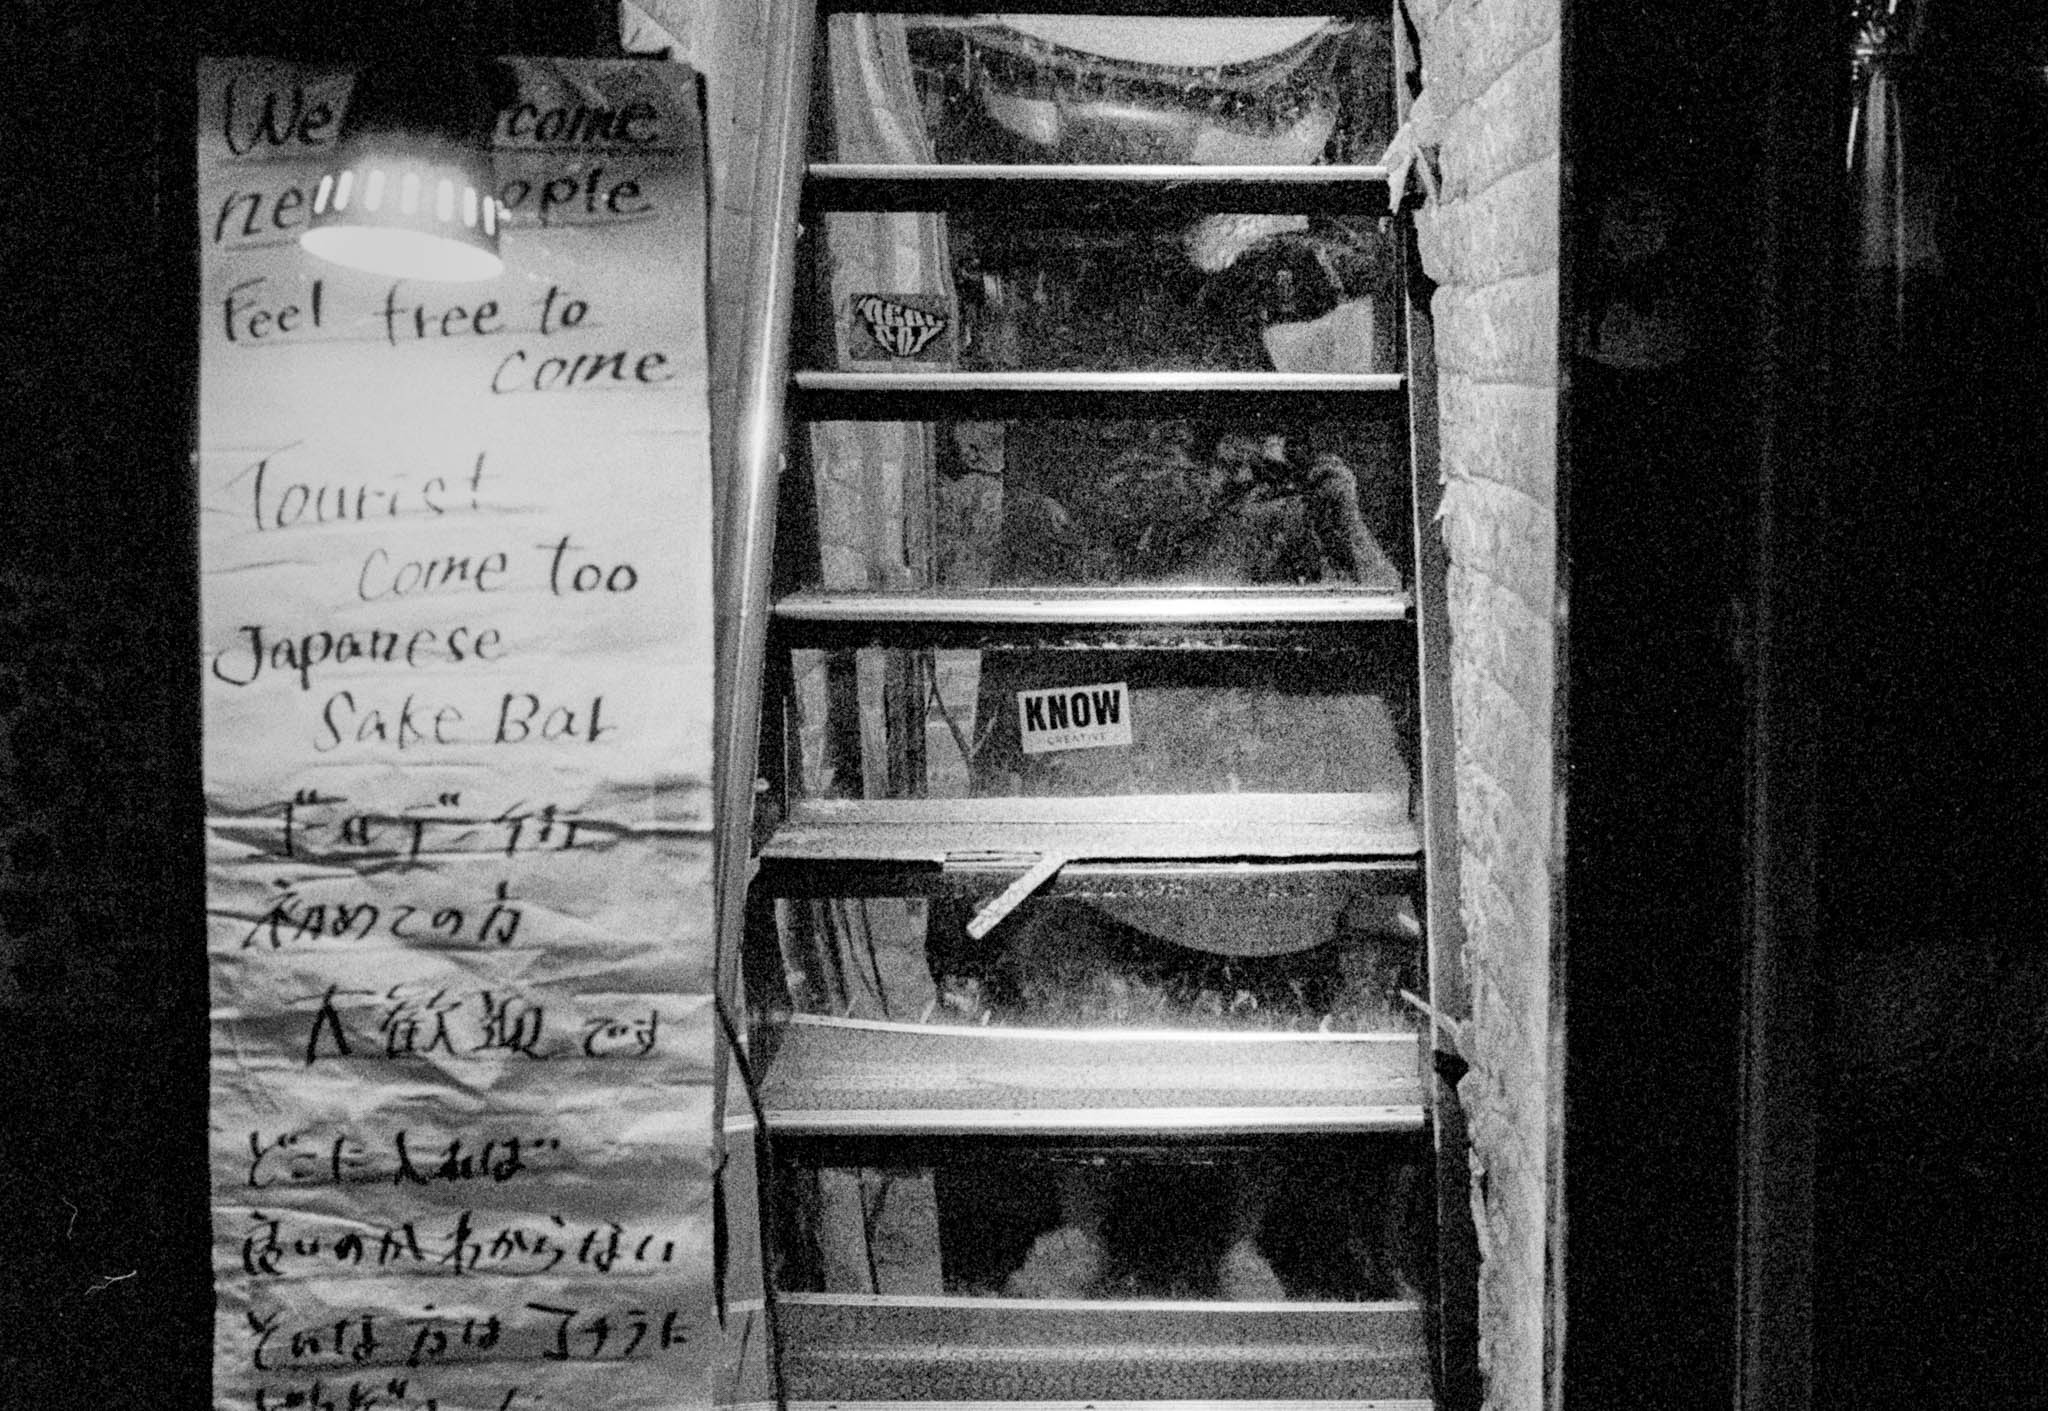 We come
ne ople
Feel free to
come
Tourist
come too
Japanese
Sake Bar
街
初めての方
大歓迎です
どこに入れば
良いのかわからない
そんな方はコチラに
KNOW
CREATIVE